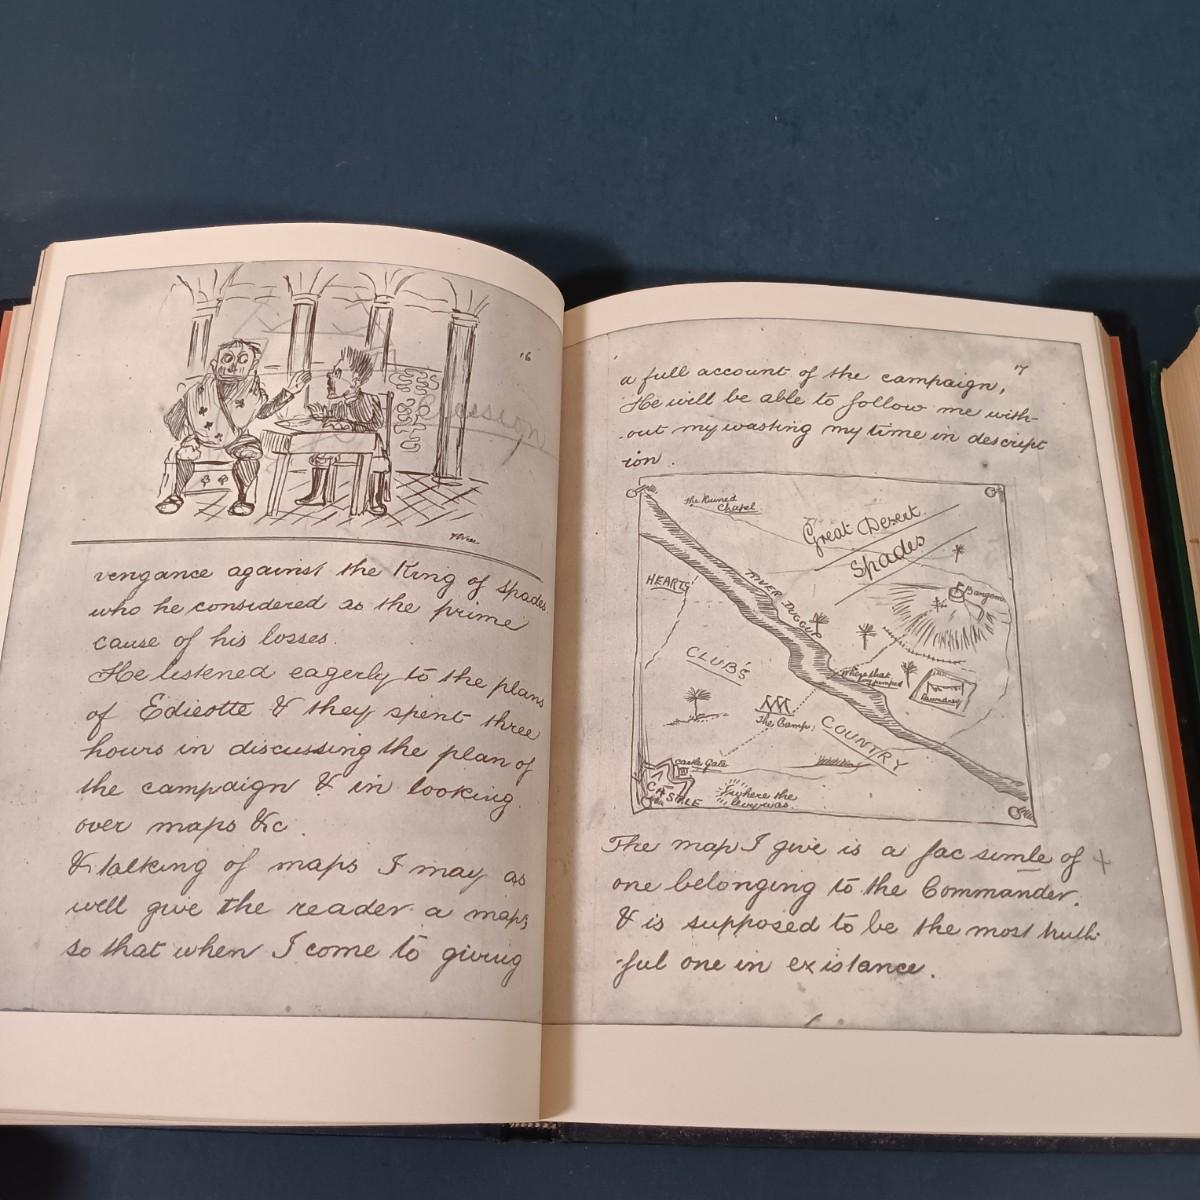 16
vengance against the King of Spades
who he considered as the prime
cause of his losses.
He listened eagerly to the plans
of Edicotte & they spent three
hours in discussing the plan of
the campaign & in looking
over maps &c.
& talking of maps I may as
well give the reader a map,
so that when I come to giving
17
a full account of the campaign,
He will be able to follow me with-
out my wasting my time in descript
ion.
The Ruined
Chapel
Great Desert
Spades
HEARTS
RIVER DUGGUP
Bangom
CLUB'S
Where that
The Camp
COUNTRY
Castle Gate
CASTLE
where the
levy was.
The map I give is a fac simle of +
one belonging to the Commander.
& is supposed to be the most truth
ful one in existance.